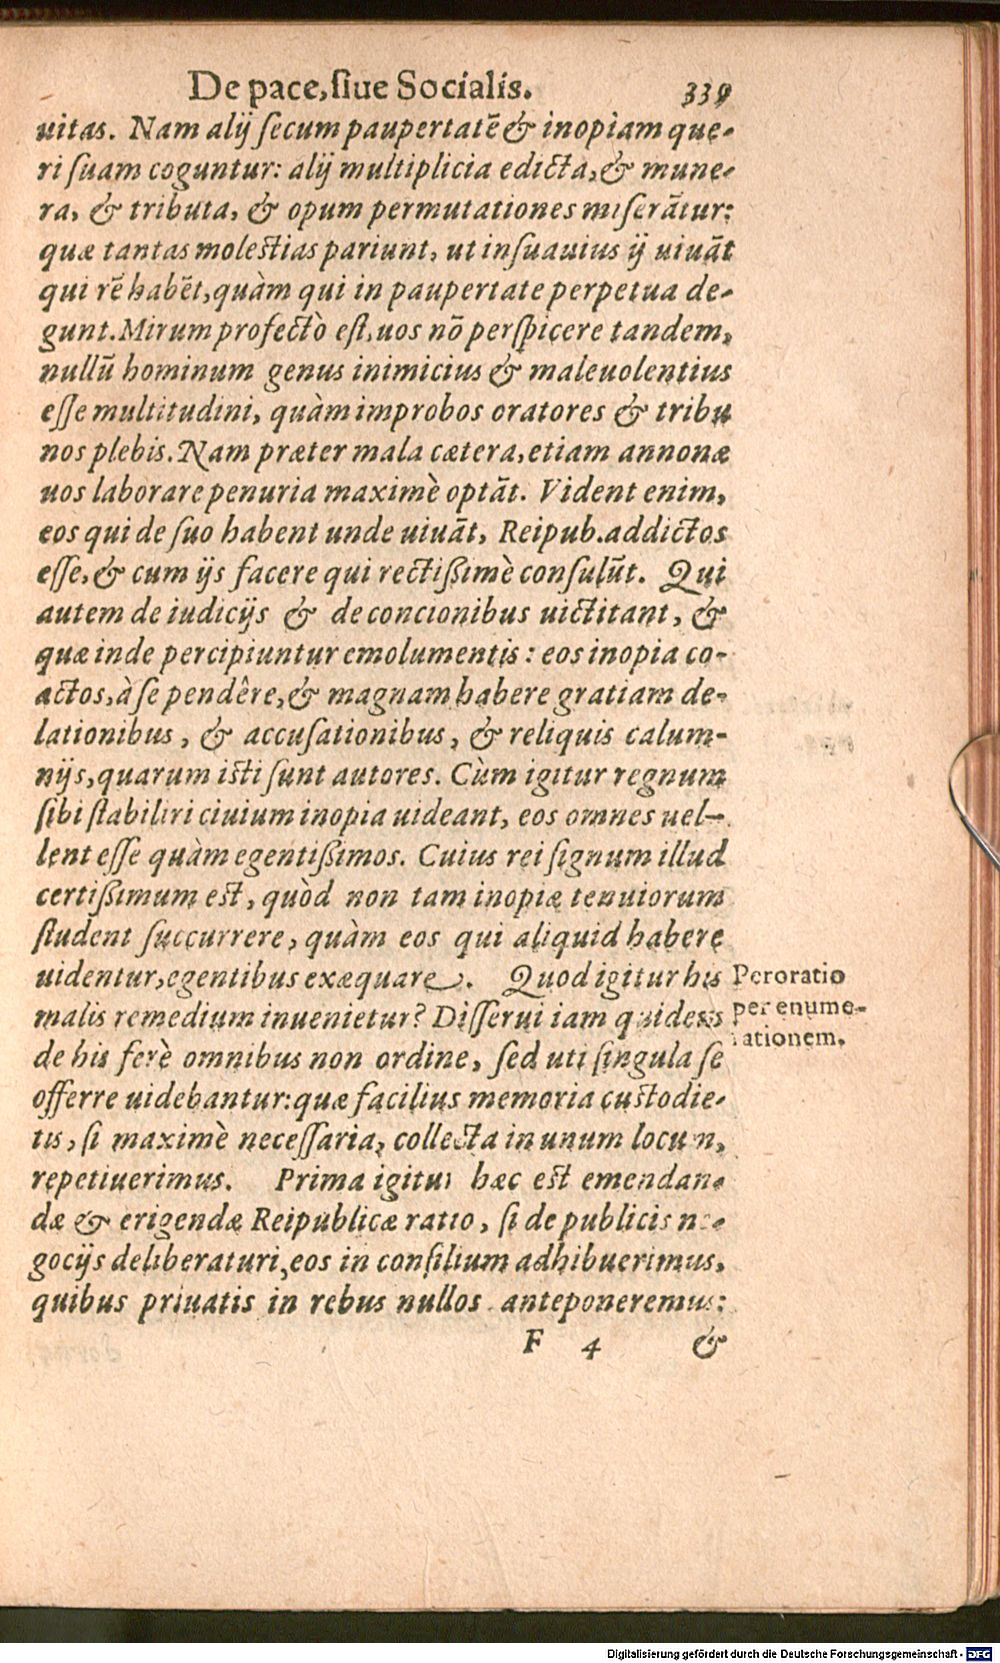 De pace, siue Socialis. 339
uitas. Nam alij secum paupertatē & inopiam que-
ri suam coguntur: alij multiplicia edicta, & mune-
ra, & tributa, & opum permutationes miserātur:
quæ tantas molestias pariunt, ut insuauius ij uiuāt
qui rē habēt, quàm qui in paupertate perpetua de-
gunt. Mirum profectò est, uos nō perspicere tandem,
nullū hominum genus inimicius & maleuolentius
esse multitudini, quàm improbos oratores & tribu
nos plebis. Nam præter mala cætera, etiam annonæ
uos laborare penuria maximè optāt. Vident enim,
eos qui de suo habent unde uiuāt, Reipub. addictos
esse, & cum ijs facere qui rectißimè consulūt. Qui
autem de iudicijs & de concionibus uictitant, &
quæ inde percipiuntur emolumentis: eos inopia co-
actos, à se pendêre, & magnam habere gratiam de-
lationibus, & accusationibus, & reliquis calum-
nijs, quarum isti sunt autores. Cùm igitur regnum
sibi stabiliri ciuium inopia uideant, eos omnes uel-
lent esse quàm egentißimos. Cuius rei signum illud
certißimum est, quòd non tam inopiæ tenuiorum
student succurrere, quàm eos qui aliquid habere
uidentur, egentibus exæquare. Quod igitur his
malis remedium inuenietur? Disserui iam quidem
de his ferè omnibus non ordine, sed uti singula se
offerre uidebantur: quæ facilius memoria custodie-
tis, si maximè necessaria, collecta in unum locum,
repetiuerimus. Prima igitur hæc est emendan-
dæ & erigendæ Reipublicæ ratio, si de publicis ne-
gocijs deliberaturi, eos in consilium adhibuerimus,
quibus priuatis in rebus nullos anteponeremus:
F 4 &
Peroratio
per enume-
rationem.
Digitalisierung gefördert durch die Deutsche Forschungsgemeinschaft - DFG